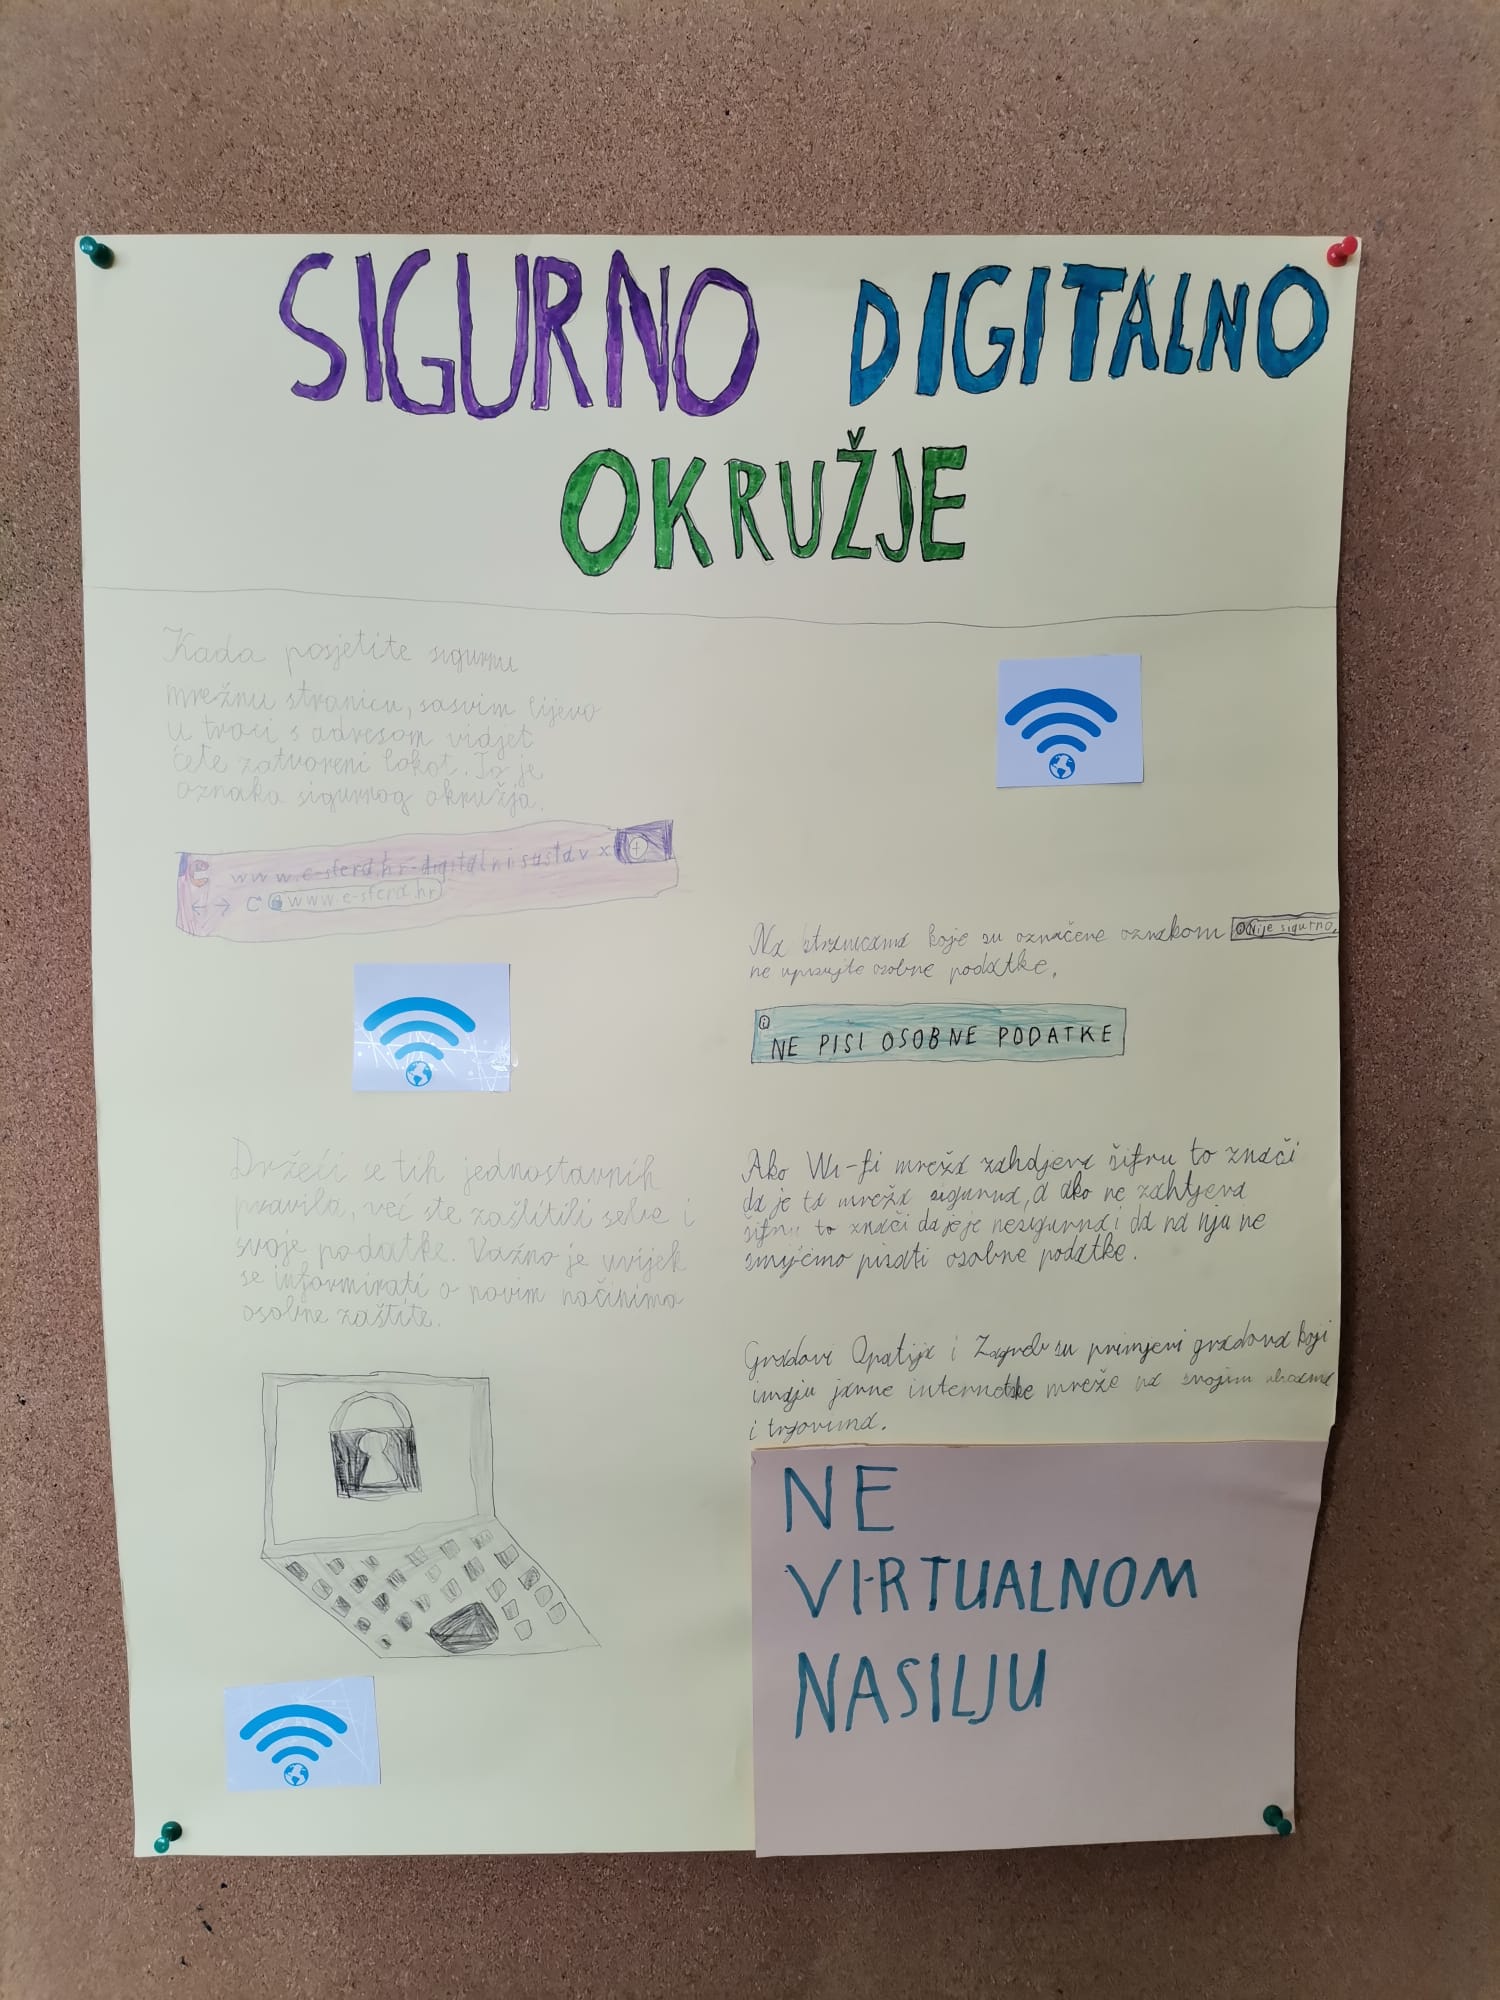 SIGURNO DIGITALNO
OKRUŽJE
Kada posjetite sigurnu
mrežnu stranicu, sasvim lijevo
u traci s adresom vidjet
ćete zatvoreni lokot. To je
oznaka sigurnog okružja.
www.e-sfera.hr-digitalni sustav x +
← → C www.e-sfera.hr
Držeći se tih jednostavnih
pravila, već ste zaštitili sebe i
svoje podatke. Važno je uvijek
se informirati o novim načinima
osobne zaštite.
Na stranicama koje su označene oznakom Nije sigurno,
ne upisujte osobne podatke.
NE PISI OSOBNE PODATKE
Ako Wi-fi mreža zahtjeva šifru to znači
da je ta mreža sigurna, a ako ne zahtjeva
šifru to znači da je je nesigurna i da na nju ne
smijemo pisati osobne podatke.
Gradovi Opatija i Zagreb su primjeri gradova koji
imaju javne internetske mreže na svojim ulicama
i trgovima.
NE
VIRTUALNOM
NASILJU